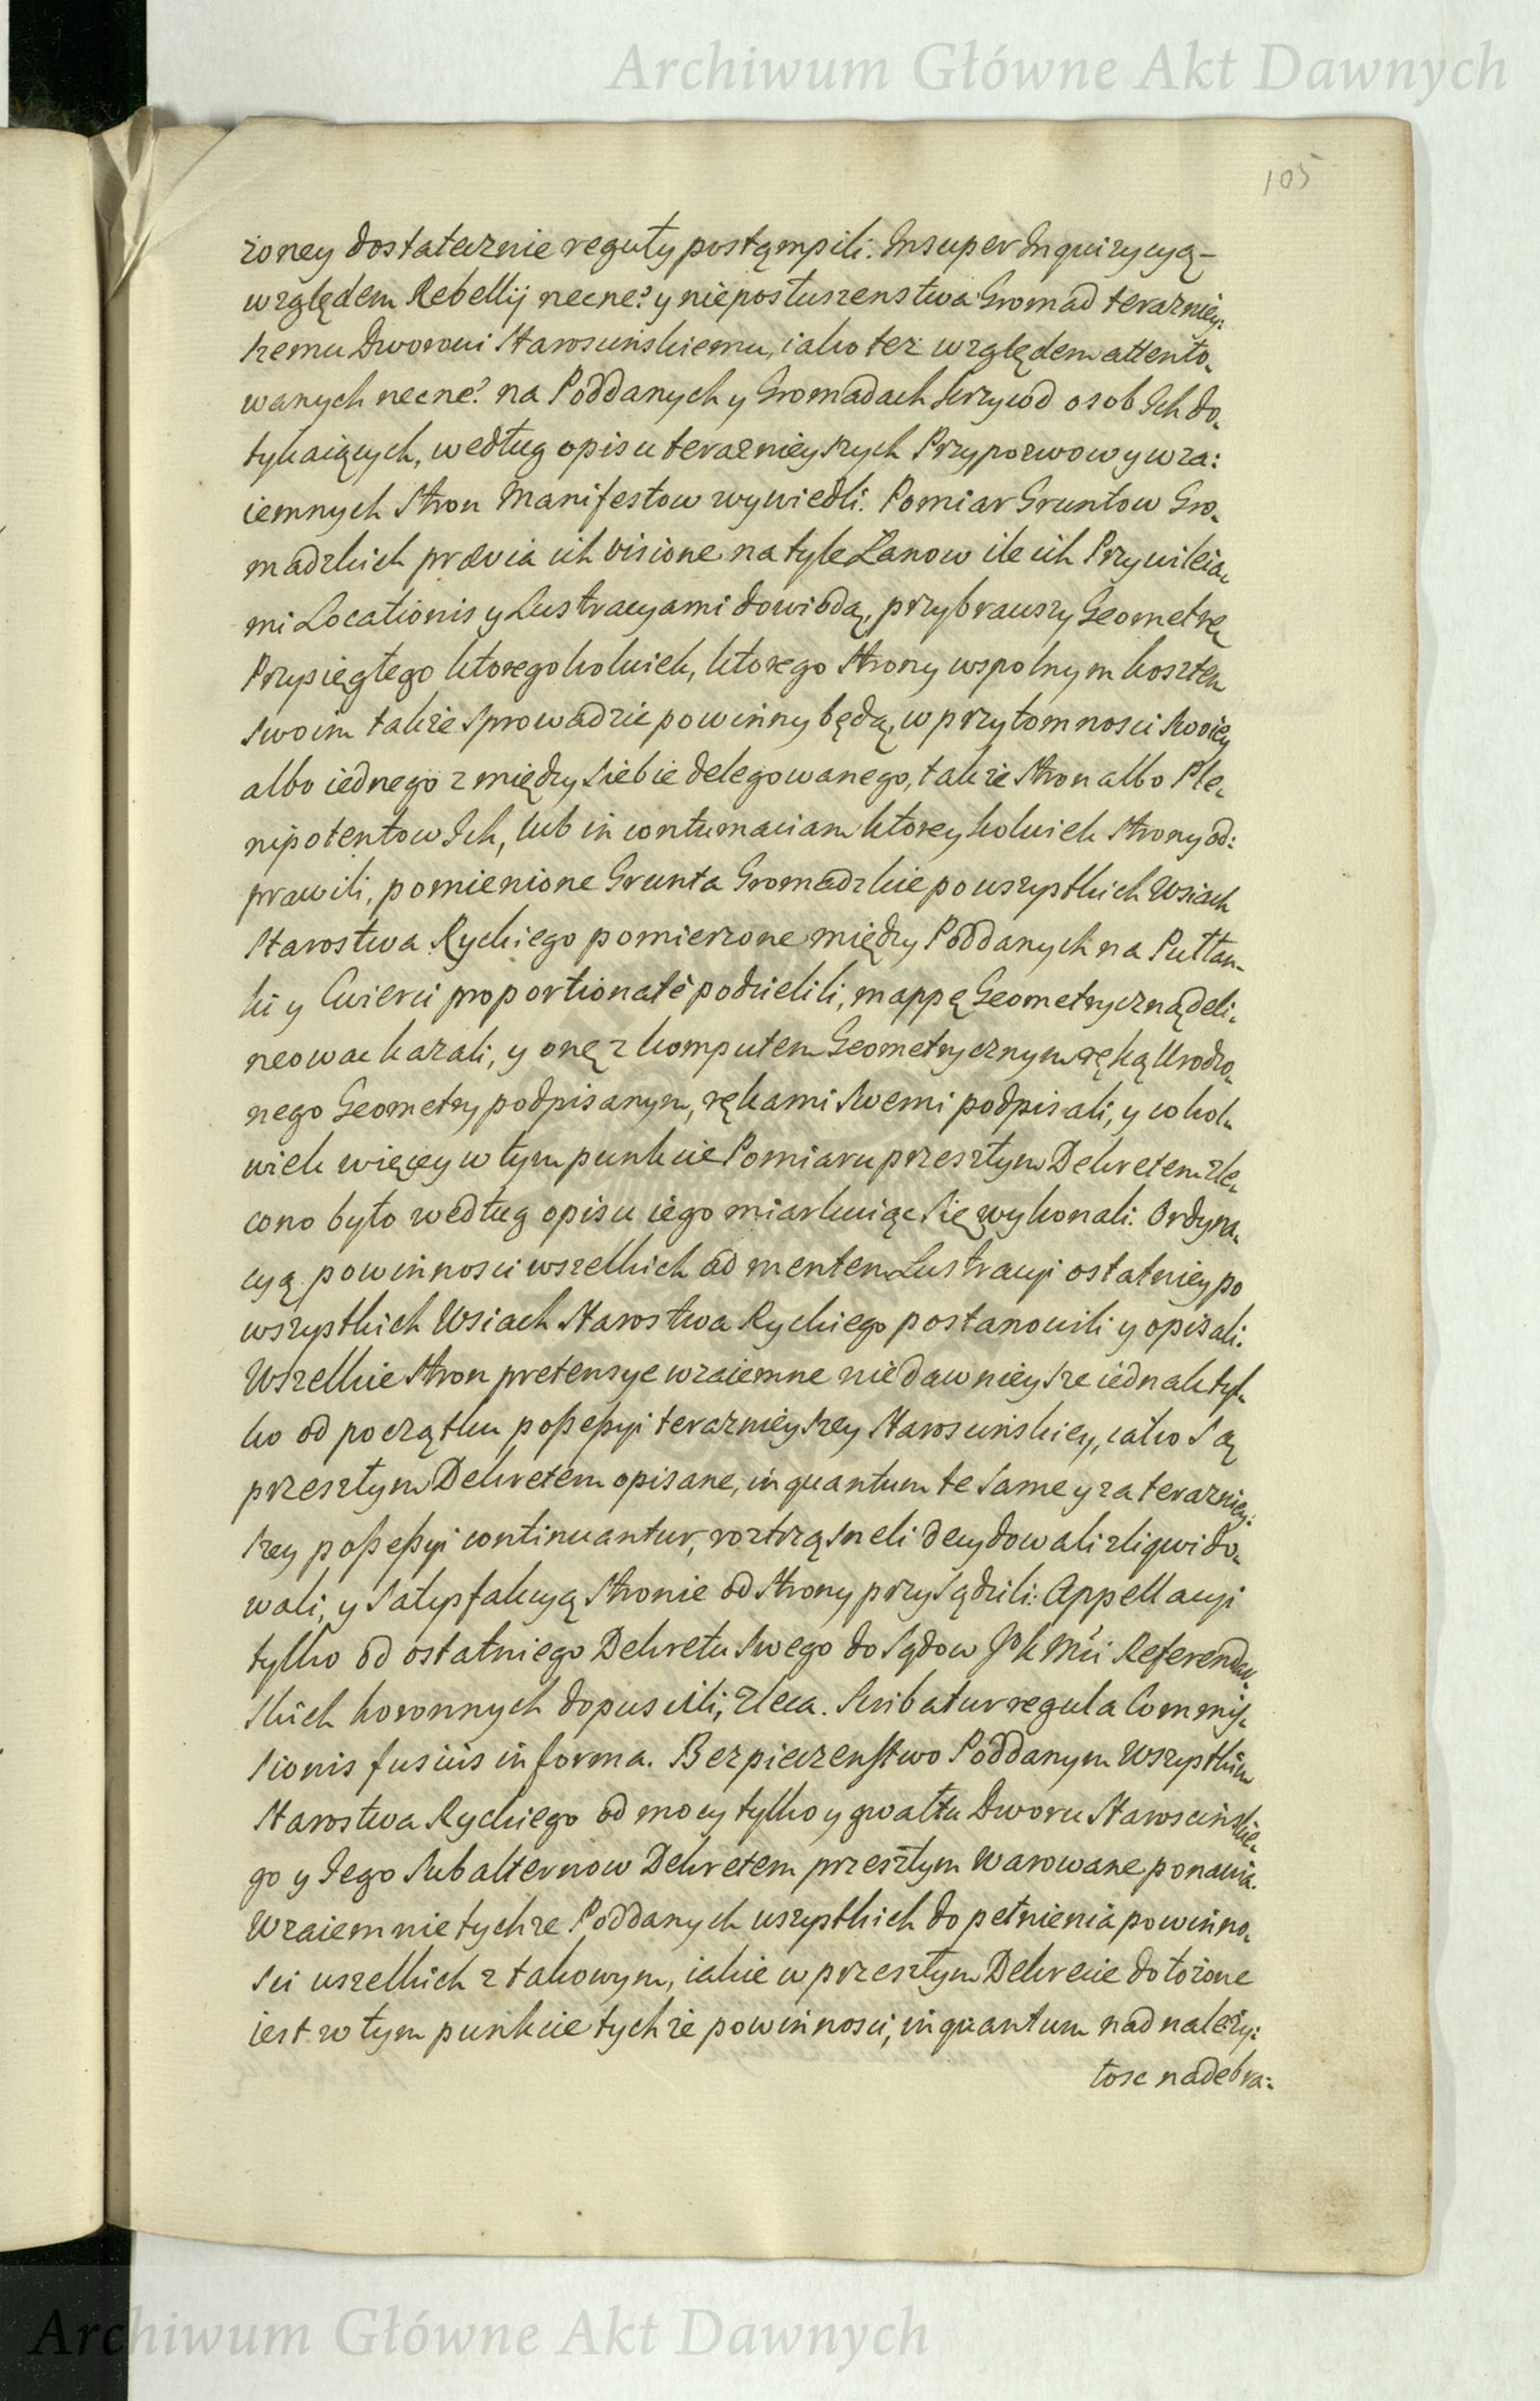 Archiwum Główne Akt Dawnych
105
żoney dostatecznie reguły postąmpili. Insuper Inquizycyą
względem Rebellij necne? y nieposłuszenstwa Gromad terazniey:
szemu Dworowi Starosinskiemu, iako też względem attento,
wanych necne? na Poddanych y Gromadach krzywd osob Ich do,
tykaiących, według opisu teraznieyszych Przypozwow y wza:
iemnych Stron Manifestow wywiedli. Pomiar Gruntow Gro,
madzkich prævia ich visione na tyle Łanow ile ich Przywileia,
mi Locationis y Lustracyami dowiodą, przybrawszy Geometrę
Przysięgłego ktoregokolwiek, ktorego Strony wspolnym kosztem
swoim także sprowadzic powinny będą, w przytomnosci swoiey
albo iednego z między siebie delegowanego, także Stron albo Ple,
nipotentow Ich, lub in contumaciam ktoreykolwiek Strony od:
prawili, pomienione Grunta Gromadzkie po wszystkich Wsiach
Starostwa Ryckiego pomierzone między Poddanych na Pułłan,
ki y Cwierci proportionatè podzielili, mappę Geometryczną deli,
neowac kazali, y onę z komputem Geometrycznym ręką Urodzo,
nego Geometry podpisanym, rękami swemi podpisali, y cokol,
wiek więcey w tym punkcie Pomiaru przeszłym Dekretem zle,
cono było według opisu iego miarkuiąc się wykonali. Ordyna,
cyą powinnosci wszelkich ad mentem Lustracyi ostatniey po
wszystkich Wsiach Starostwa Ryckiego postanowili y opisali.
Wszelkie Stron pretensye wzaiemne niedawnieysze iednak tyl,
ko od początku possessyi teraznieyszey Starosinskiey, iako są
przeszłym Dekretem opisane, inquantum te same y za terazniey:
szey possessyi continuantur, roztrząsneli decydowali zliqwido,
wali, y satysfakcyą Stronie od Strony przysądzili. Appellacyi
tylko od ostatniego Dekretu swego do Sądow JKMci Referendar,
skich koronnych dopuscili, zleca. Scribatur regula Commis,
sionis fusiùs in forma. Bezpieczenstwo Poddanym Wszystkim
Starostwa Ryckiego od mocy tylko y gwałtu Dworu Staroscinskie,
go y Jego Subalternow Dekretem przeszłym warowane ponawia.
Wzaiemnie tychże Poddanych wszystkich do pełnienia powinno,
sci wszelkich z takowym, iakie w przeszłym Dekrecie dołożone
iest w tym punkcie tychże powinnosci, inquantum nad należy:
tosc nadebra:
Archiwum Główne Akt Dawnych